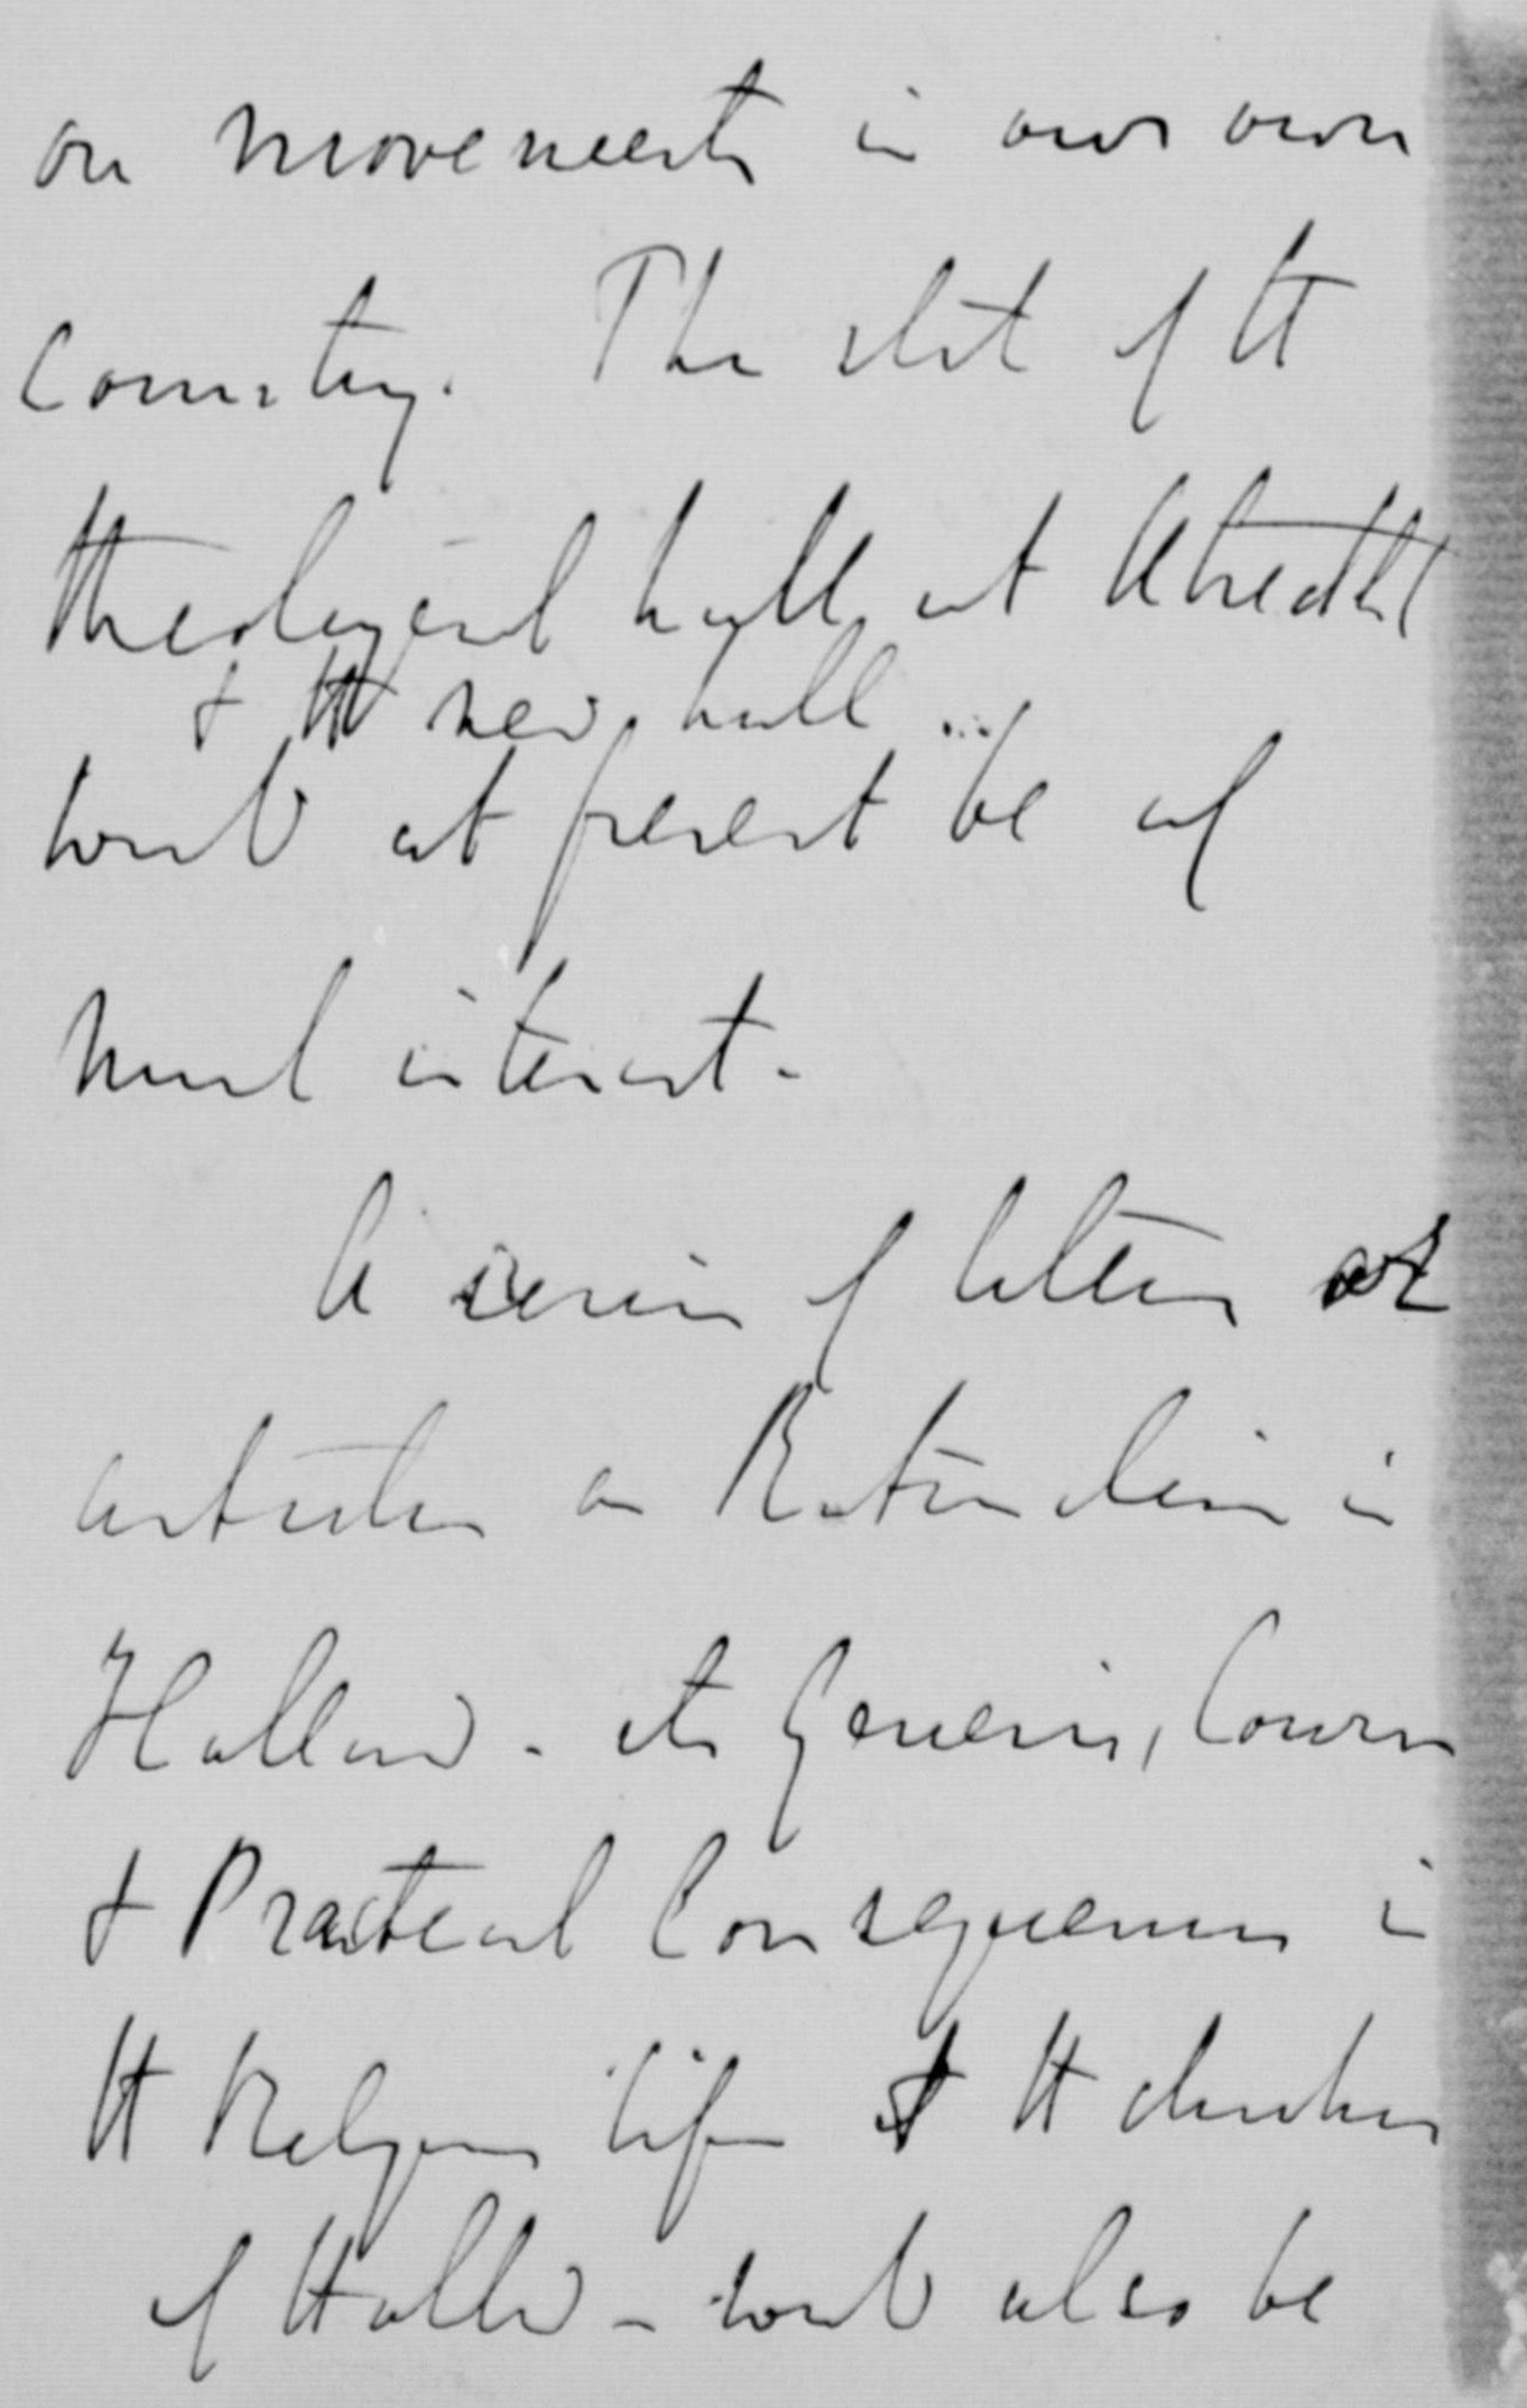 on movements in our own
Country. The state of the
theological hall at Utrecht
& the new hall ...
would at present be of
much interest.
A series of letters or
articles on Rationalism in
Holland - its Genesis, Course
& Practical Consequences in
the Religious life of the churches
of Holland - would also be